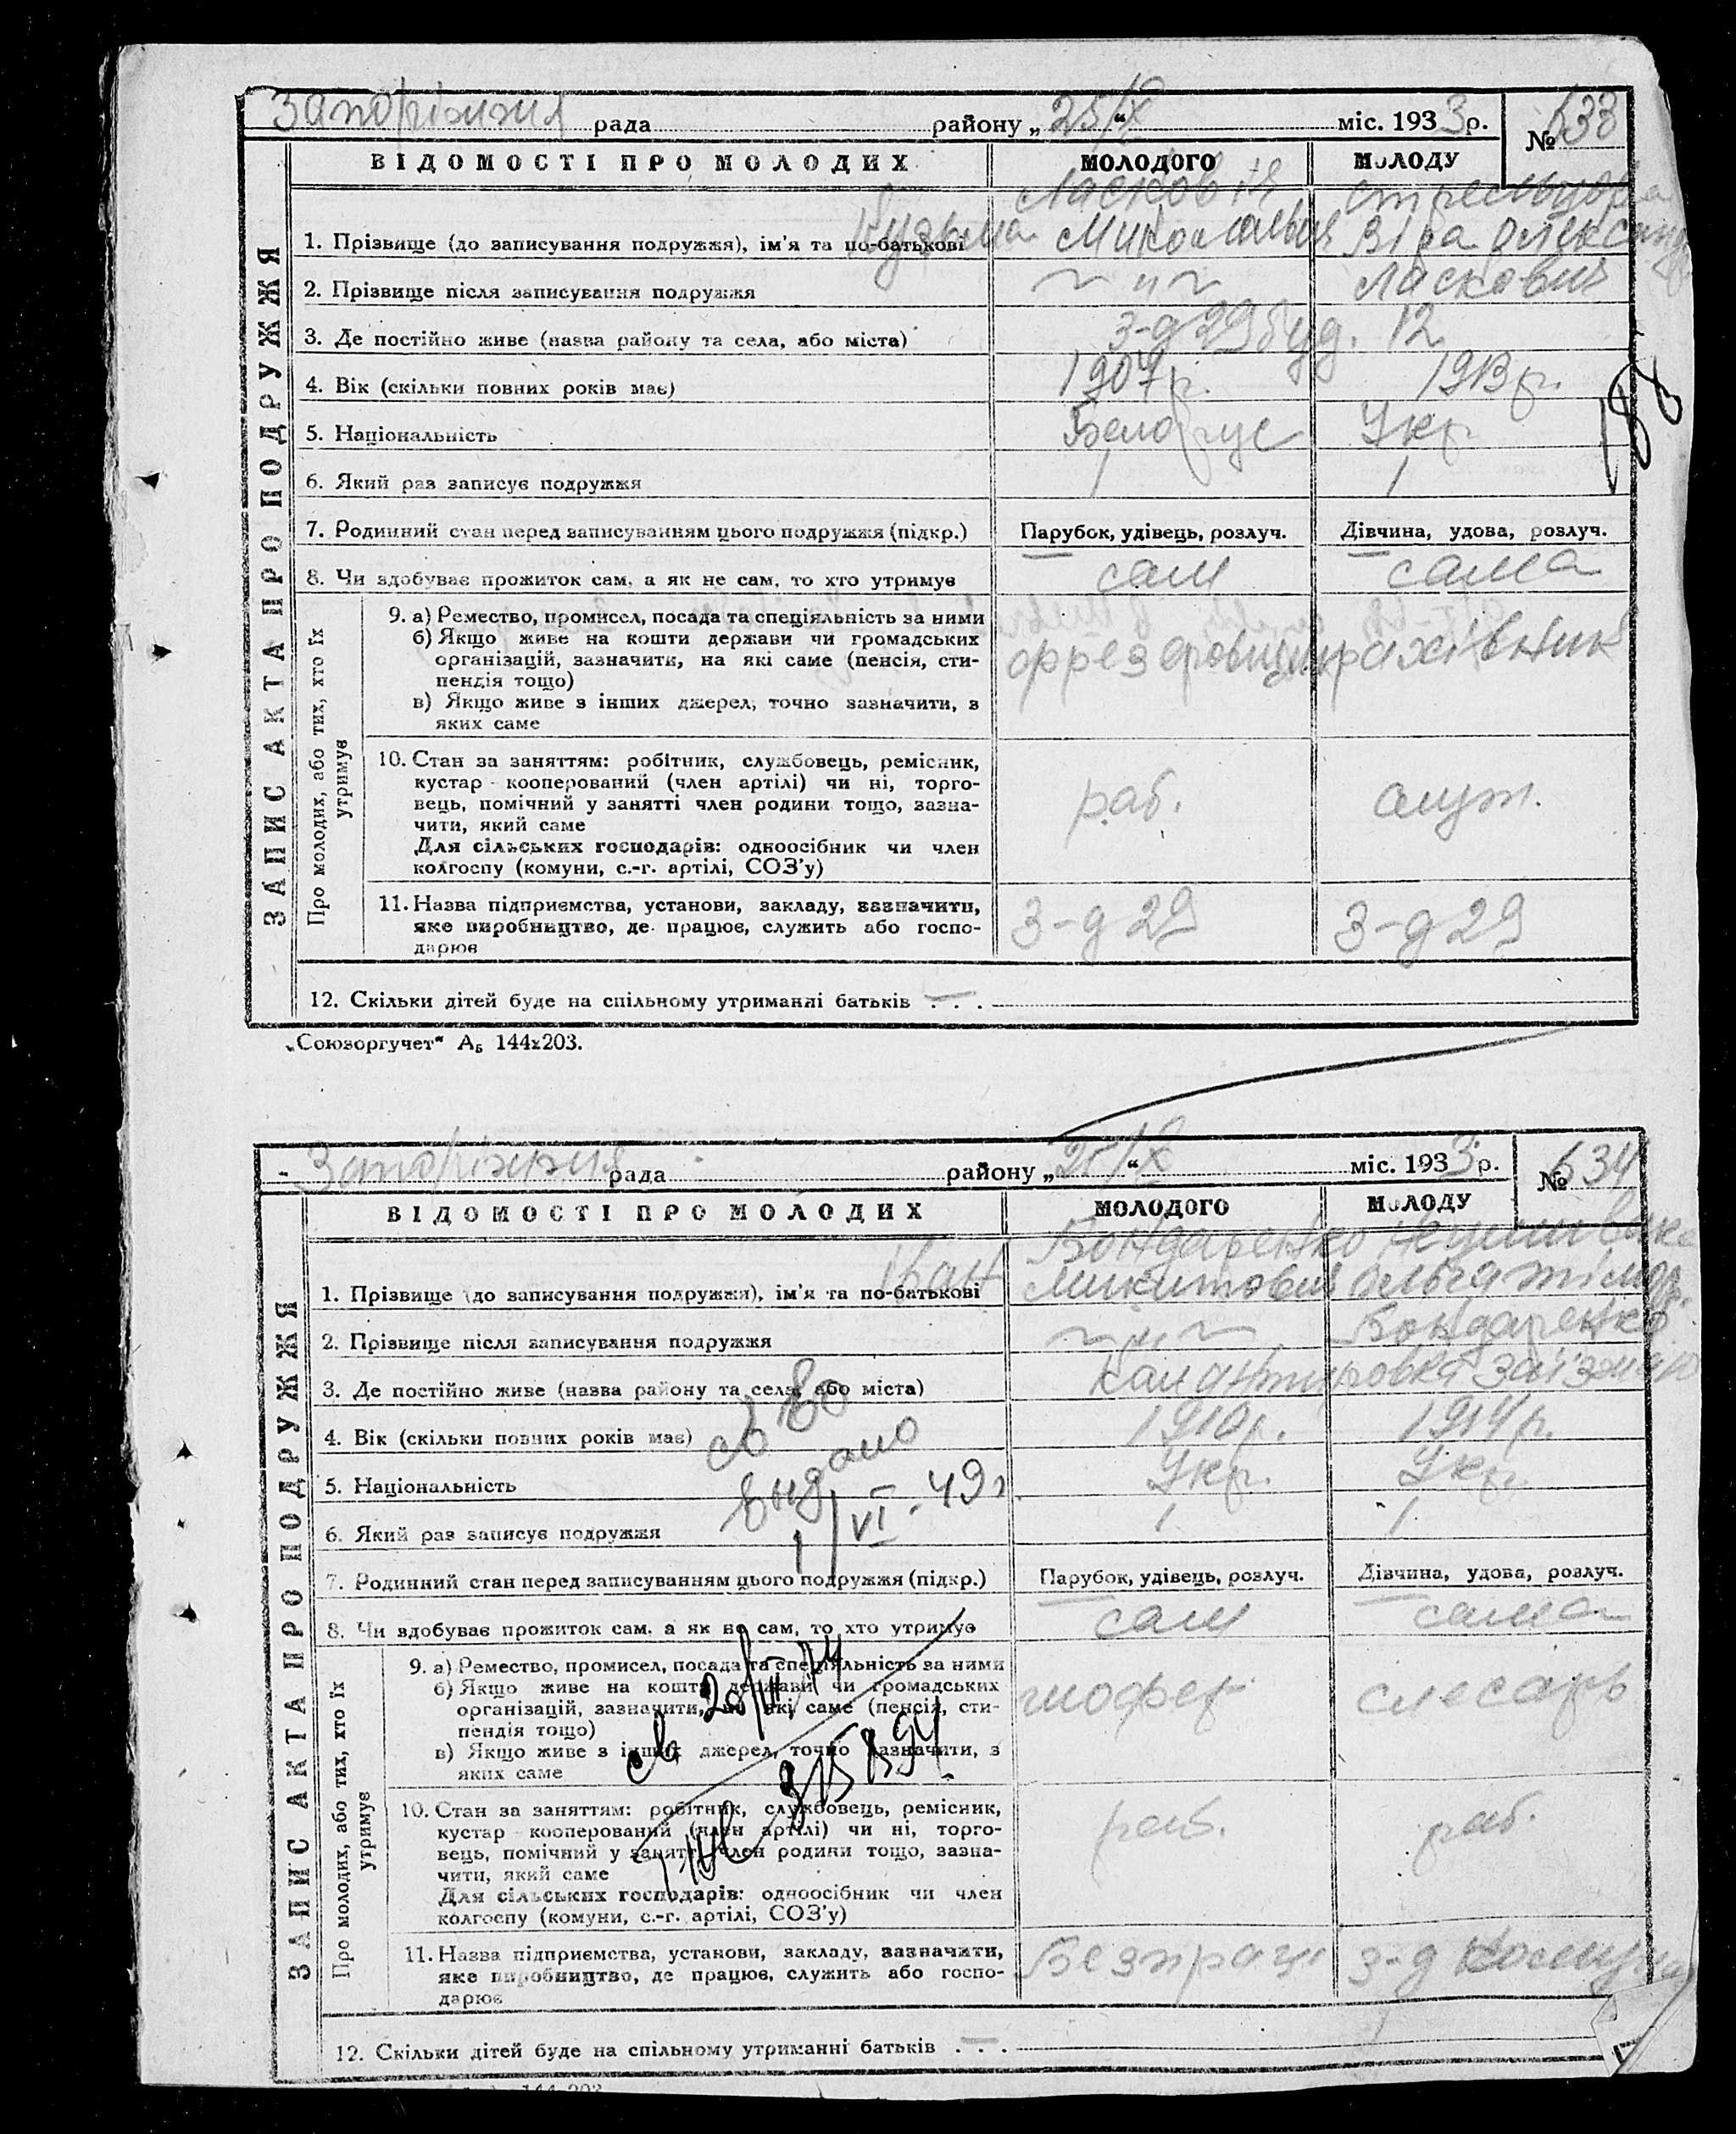 Запоріжжя рада району „25/IX“ міс. 1933 р. № 633
ВІДОМОСТІ ПРО МОЛОДИХ МОЛОДОГО МОЛОДУ
ЗАПИС АКТА ПРО ПОДРУЖЖЯ
Ласкович Стрельцова
1. Прізвище (до записування подружжя), ім'я та по-батькові Кузьма Миколаевич Віра Олександ
2. Прізвище після записування подружжя ~ " ~ Ласкович
3. Де постійно живе (назва району та села, або міста) З-д 29 буд. 12
4. Вік (скільки повних років має) 1907 р. 1913 р.
5. Національність Белорус Укр
6. Який раз записує подружжя 1 1
7. Родинний стан перед записуванням цього подружжя (підкр.) Парубок, удівець, розлуч. Дівчина, удова, розлуч.
8. Чи здобуває прожиток сам, а як не сам, то хто утримує сам сама
Про молодих, або тих, хто їх утримує
9. а) Ремество, промисел, посада та спеціяльність за ними
б) Якщо живе на кошти держави чи громадських
організацій, зазначити, на які саме (пенсія, сти- фрезеровщик рахівник
пендія тощо)
в) Якщо живе з інших джерел, точно зазначити, з
яких саме
10. Стан за заняттям: робітник, службовець, ремісник,
кустар - кооперований (член артілі) чи ні, торго-
вець, помічний у занятті член родини тощо, зазна- раб. служ.
чити, який саме
Для сільських господарів: одноосібник чи член
колгоспу (комуни, с.-г. артілі, СОЗ'у)
11. Назва підприємства, установи, закладу, зазначити,
яке виробництво, де працює, служить або госпо- З-д 29 З-д 29
дарює
12. Скільки дітей буде на спільному утриманні батьків — . . .
„Союзоргучет“ АБ 144х203.
Запоріжжя рада району „25/IX“ міс. 1933 р. № 634
ВІДОМОСТІ ПРО МОЛОДИХ МОЛОДОГО МОЛОДУ
ЗАПИС АКТА ПРО ПОДРУЖЖЯ
Бондаренко
1. Прізвище (до записування подружжя), ім'я та по-батькові Іван Микитович Ольга
2. Прізвище після записування подружжя ~ " ~ Бондаренко
3. Де постійно живе (назва району та села, або міста) Калантировка
4. Вік (скільки повних років має) 1910 р. 1914 р.
св во
выдано
1/VI - 49 г
5. Національність Укр. Укр.
6. Який раз записує подружжя 1 1
7. Родинний стан перед записуванням цього подружжя (підкр.) Парубок, удівець, розлуч. Дівчина, удова, розлуч.
8. Чи здобуває прожиток сам, а як не сам, то хто утримує сам сама
Про молодих, або тих, хто їх утримує
9. а) Ремество, промисел, посада та спеціяльність за ними
б) Якщо живе на кошти держави чи громадських шофер слесарь
організацій, зазначити, на які саме (пенсія, сти-
пендія тощо)
в) Якщо живе з інших джерел, точно зазначити, з
яких саме
10. Стан за заняттям: робітник, службовець, ремісник,
кустар - кооперований (член артілі) чи ні, торго- раб. раб.
вець, помічний у занятті член родини тощо, зазна-
чити, який саме
Для сільських господарів: одноосібник чи член
колгоспу (комуни, с.-г. артілі, СОЗ'у)
11. Назва підприємства, установи, закладу, зазначити,
яке виробництво, де працює, служить або госпо- Без праці з-д Комунар
дарює
12. Скільки дітей буде на спільному утриманні батьків — . . .